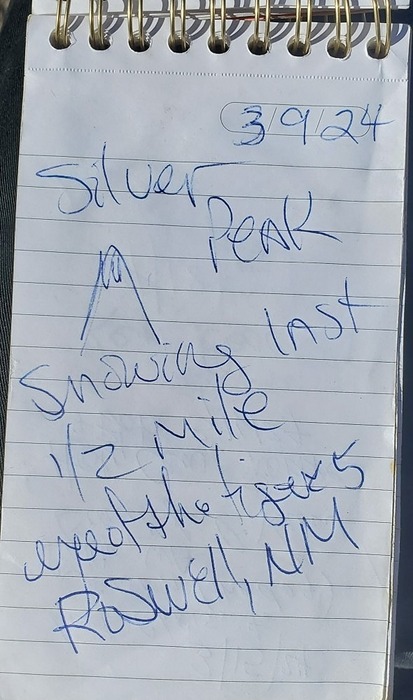 3/9/24
Silver
Peak
Snowing last
1/2 mile
eyeofthetigerx5
Roswell, NM